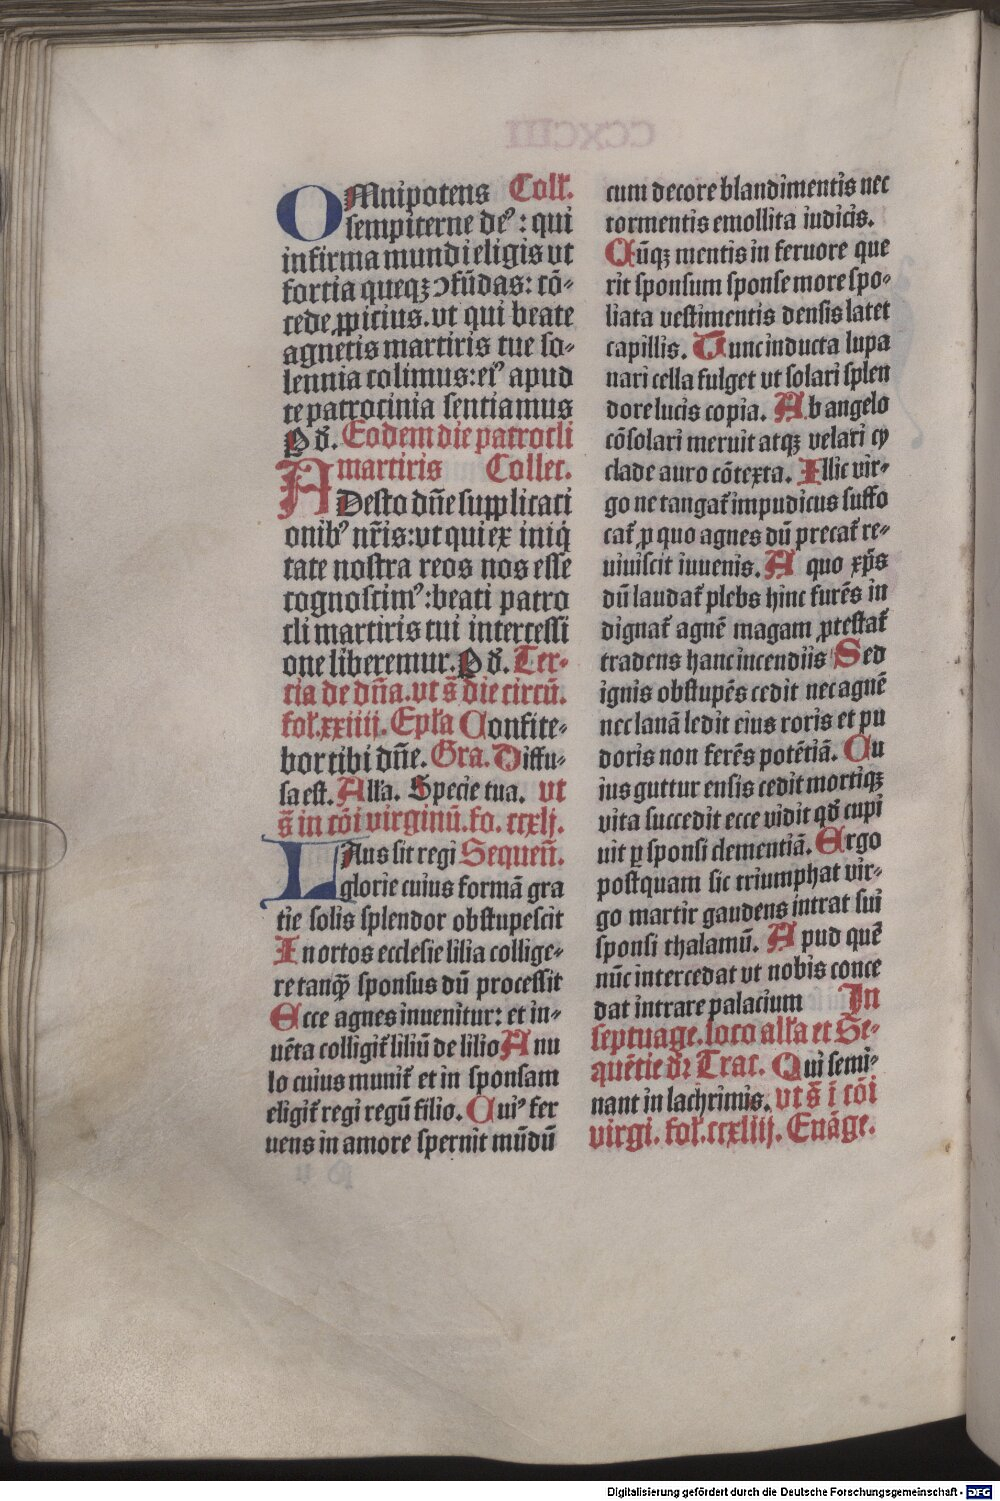 OMnipotens Coll'.
sempiterne deꝰ: qui
infirma mundi eligis vt
fortia queqꝫ ↄfūdas: cō-
cede ꝓpicius. vt qui beate
agnetis martiris tue so-
lennia colimus: eiꝰ apud
te patrocinia sentiamus
P d̄. Eodem die patrocli
martiris Collec.
ADesto dn̄e supplicati
onibꝰ nr̄is: vt qui ex iniq̄
tate nostra reos nos esse
cognoscimꝰ: beati patro
cli martiris tui intercessi
one liberemur. P d̄. Ter-
cia de dn̄a. vt s̄ die circū.
fol'. xxiiij. Ep̄la Confite-
bor tibi dn̄e. Gra. Diffu-
sa est. All'a. Specie tua. vt
s̄ in cōi virginū. fo. ccxlj.
LAus sit regi Sequen̄.
glorie cuius formā gra
tie solis splendor obstupescit
In ortos ecclesie lilia collige-
re tanq̄ sponsus dū processit
Ecce agnes inuenitur: et in-
uēta colligit' liliū de lilio Anu
lo cuius munit' et in sponsam
eligit' regi regū filio. Cuiꝰ fer
uens in amore spernit mūdū
cum decore blandimentis nec
tormentis emollita iudicis.
Cūqꝫ mentis in feruore que
rit sponsum sponse more spo-
liata vestimentis densis latet
capillis. Tunc inducta lupa
nari cella fulget vt solari splen
dore lucis copia. Ab angelo
cōsolari meruit atqꝫ velari cy
clade auro cōtexta. Illic vir-
go ne tangat' impudicus suffo
cat' ꝓ quo agnes dū precat' re-
uiuiscit iuuenis. A quo xp̄s
dū laudat' plebs hinc furēs in
dignat' agnē magam ꝓtestat'
tradens hanc incendiis Sed
ignis obstupēs cedit nec agnē
nec lanā ledit eius roris et pu
doris non ferēs potētiā. Cu
ius guttur ensis cedit mortiqꝫ
vita succedit ecce vidit qd̄ cupi
uit ꝑ sponsi clementiā. Ergo
postquam sic triumphat vir-
go martir gaudens intrat sui
sponsi thalamū. Apud quē
nūc intercedat vt nobis conce
dat intrare palacium In
septuage. loco all'a et Se-
quētie dr̄ Trac. Qui semi-
nant in lachrimis. vt s̄ ī cōi
virgi. fol'. ccxliij. Euāge.
Digitalisierung gefördert durch die Deutsche Forschungsgemeinschaft - DFG